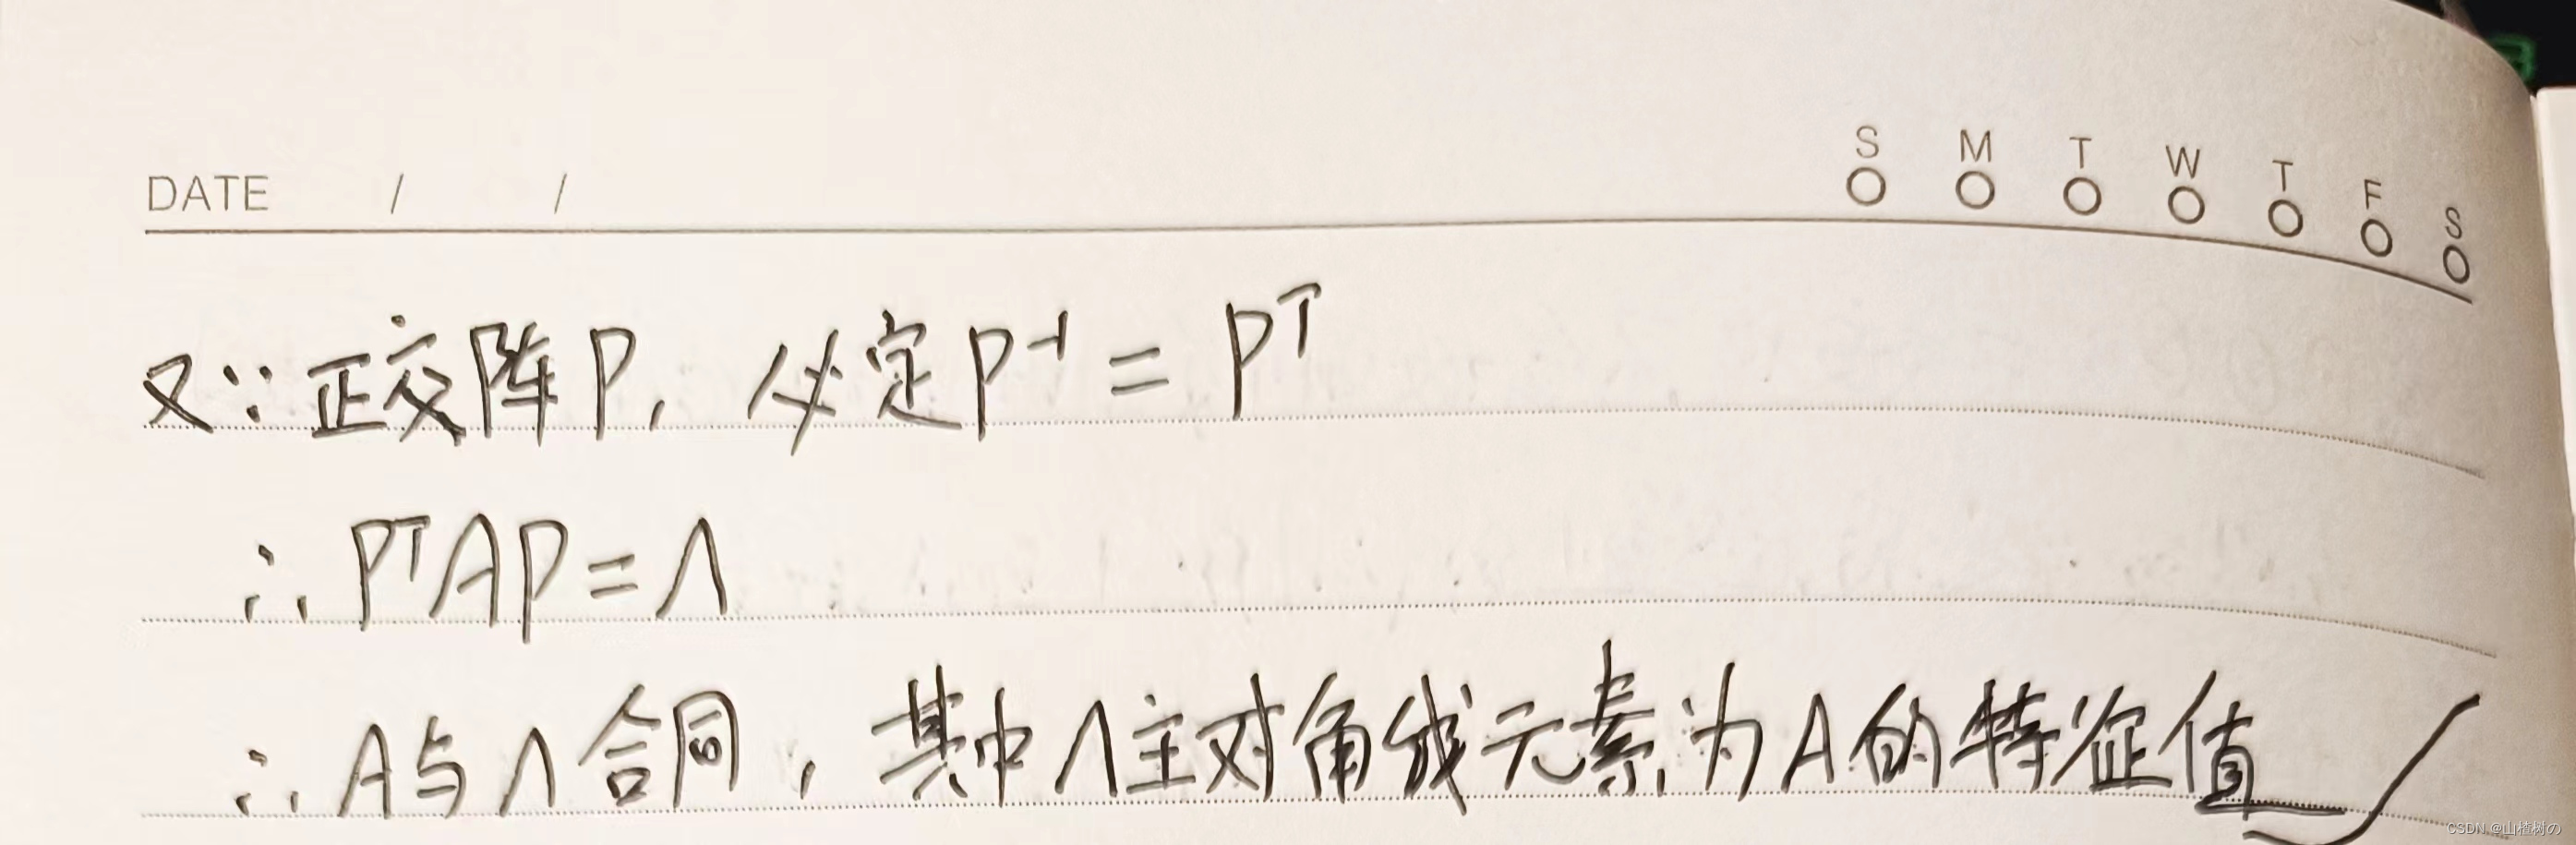 DATE / / S M T W T F S
又∵正交阵P,必定P⁻¹=Pᵀ
∴PᵀAP=Λ
∴A与Λ合同,其中Λ主对角线元素为A的特征值
CSDN @山楂树の